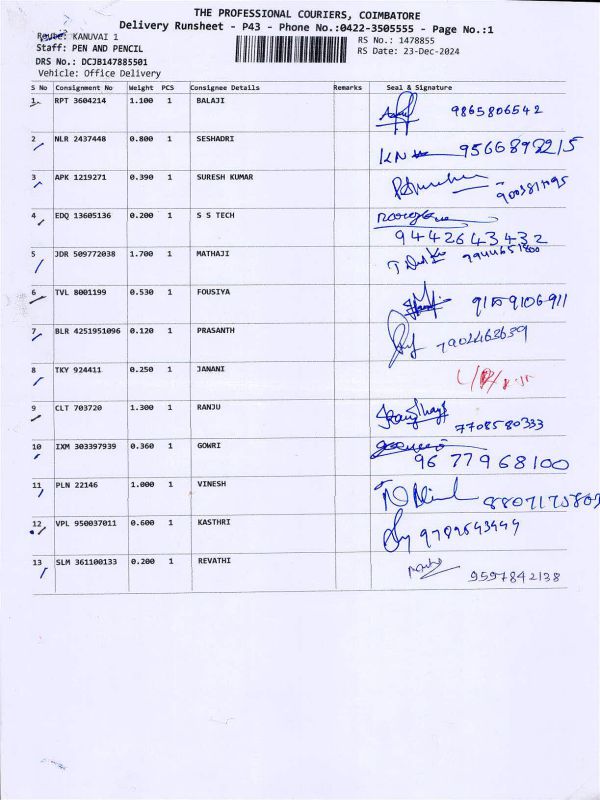 THE PROFESSIONAL COURIERS, COIMBATORE
Delivery Runsheet - P43 - Phone No.:0422-3505555 - Page No.:1
Route: KANUVAI 1
RS No.: 1478855
Staff: PEN AND PENCIL
RS Date: 23-Dec-2024
DRS No.: DCJB147885501
Vehicle: Office Delivery
S No Consignment No Weight PCS Consignee Details Remarks Seal & Signature
1 RPT 3604214 1.100 1 BALAJI 9865806542
2 NLR 2437448 0.800 1 SESHADRI KN
3 APK 1219271 0.390 1 SURESH KUMAR
4 EDQ 13605136 0.200 1 S S TECH 9442643432
5 JDR 509772038 1.700 1 MATHAJI
6 TVL 8001199 0.530 1 FOUSIYA 9159106911
7 BLR 4251951096 0.120 1 PRASANTH 7904463639
8 TKY 924411 0.250 1 JANANI
9 CLT 703720 1.300 1 RANJU 7708580333
10 IXM 303397939 0.360 1 GOWRI 9677968100
11 PLN 22146 1.000 1 VINESH
12 VPL 950037011 0.600 1 KASTHRI 9789643444
13 SLM 361100133 0.200 1 REVATHI 9597842138